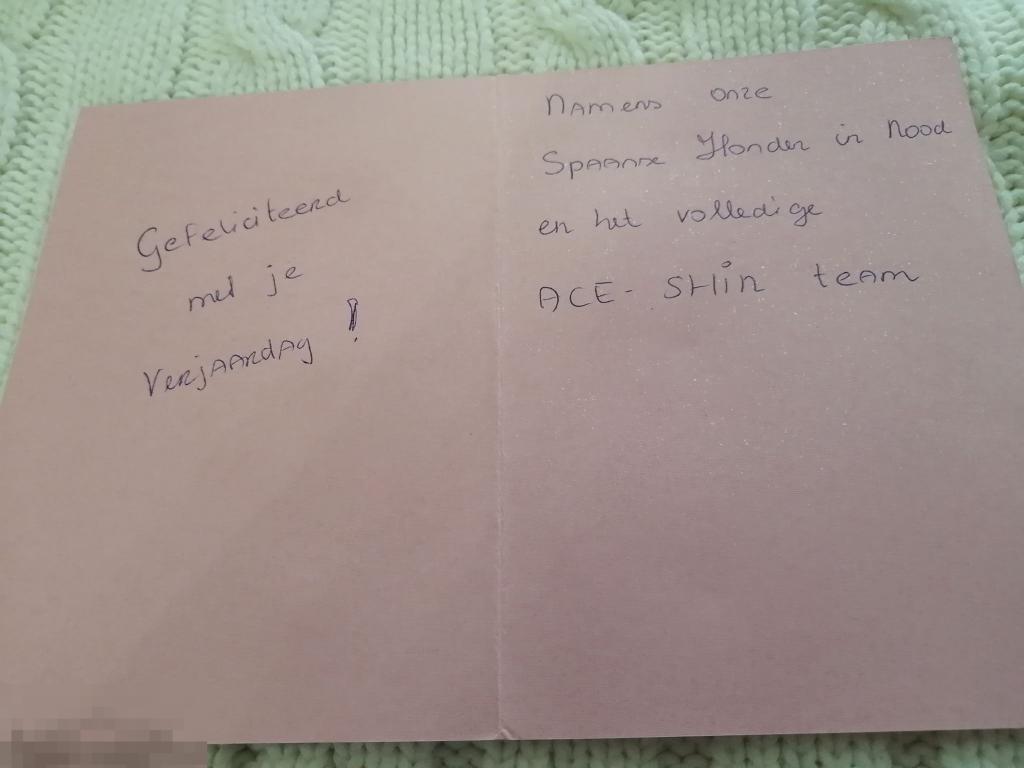 Gefeliciteerd
met je
Verjaardag !
Namens onze
Spaanse Honden in Nood
en het volledige
ACE - SHin team